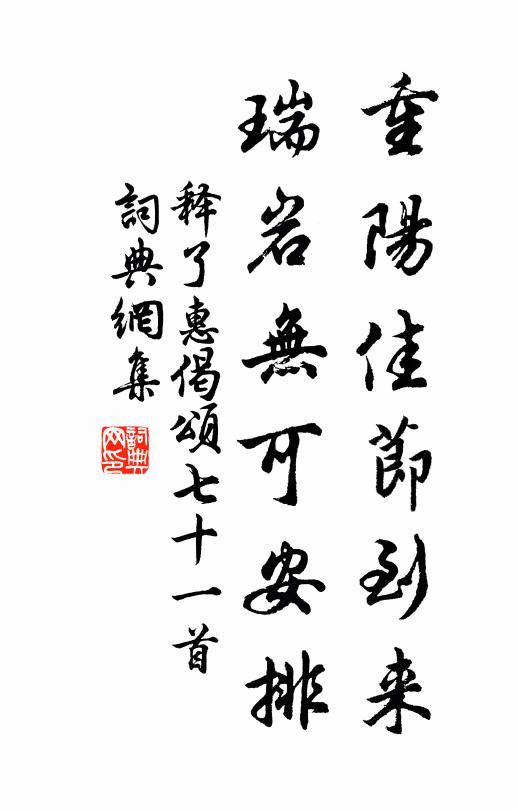 重陽佳節到来
瑞岩無可安排
释了惠偈頌七十一首
詞典網集
詞典网印